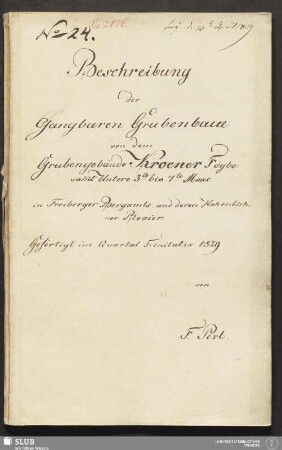 No 24.
Beschreibung
der
Gangbaren Grubenbaue
von dem
Grubengebäude Kroener Fdgbe
samt Untere 3te bis 7te Maas
in Freiberger Bergamts und deren Hohenbirk-
ner Revier
Gefertigt im Quartal Trinitatis 1829
von
F. Perl.
SLUB
Wir führen Wissen.
UNIVERSITÄTSBIBLIOTHEK
FREIBERG